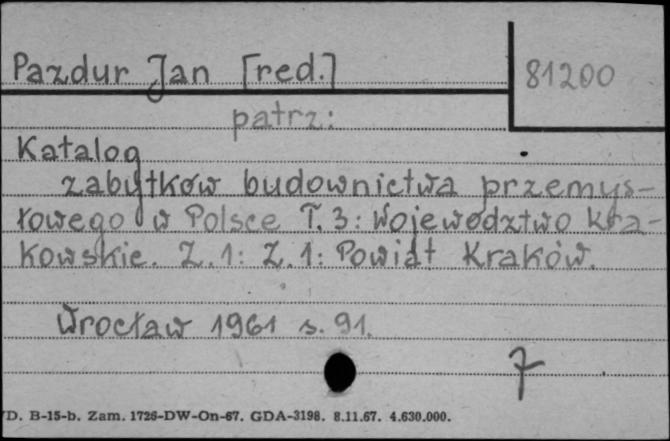 Pazdur Jan [red.]
81200
patrz:
Katalog
zabytków budownictwa przemys-
łowego w Polsce T. 3: Województwo kra-
kowskie. Z. 1: Z. 1: Powiat Kraków.
Wrocław 1961 s. 91.
7
D. B-15-b. Zam. 1726-DW-On-67. GDA-3198. 8.11.67. 4.630.000.